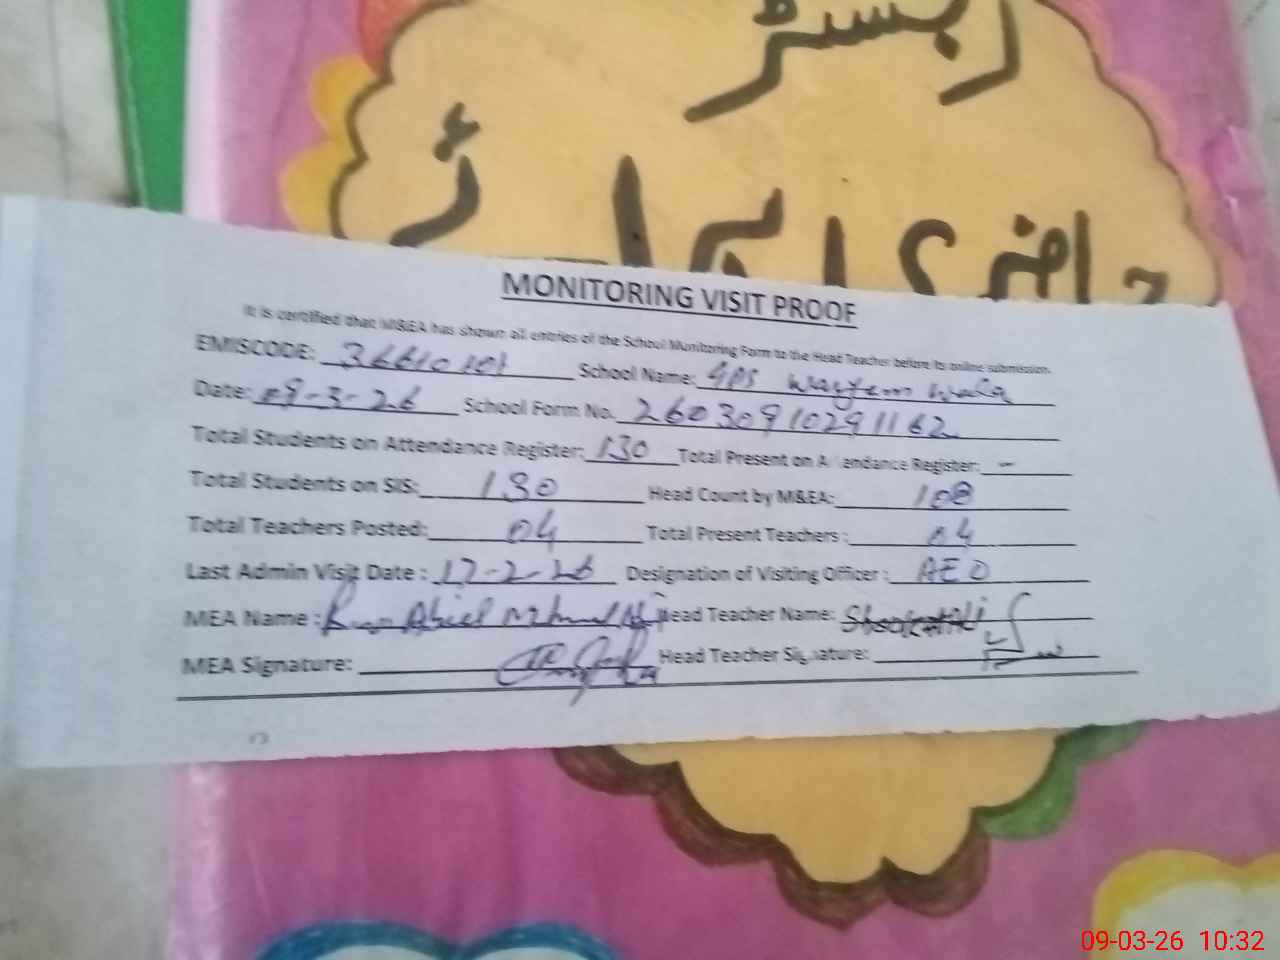 رجسٹر
حاضری
MONITORING VISIT PROOF
It is certified that M&EA has shown all entries of the School Monitoring Form to the Head Teacher before its online submission.
EMISCODE: School Name: GPS
Date: 09-3-26 School Form No. 26030910291162
Total Students on Attendance Register: 130 Total Present on Attendance Register: -
Total Students on SIS: 130 Head Count by M&EA: 108
Total Teachers Posted: 04 Total Present Teachers : 04
Last Admin Visit Date : 17-2-26 Designation of Visiting Officer : AEO
MEA Name : Head Teacher Name:
MEA Signature: Head Teacher Signature:
09-03-26 10:32